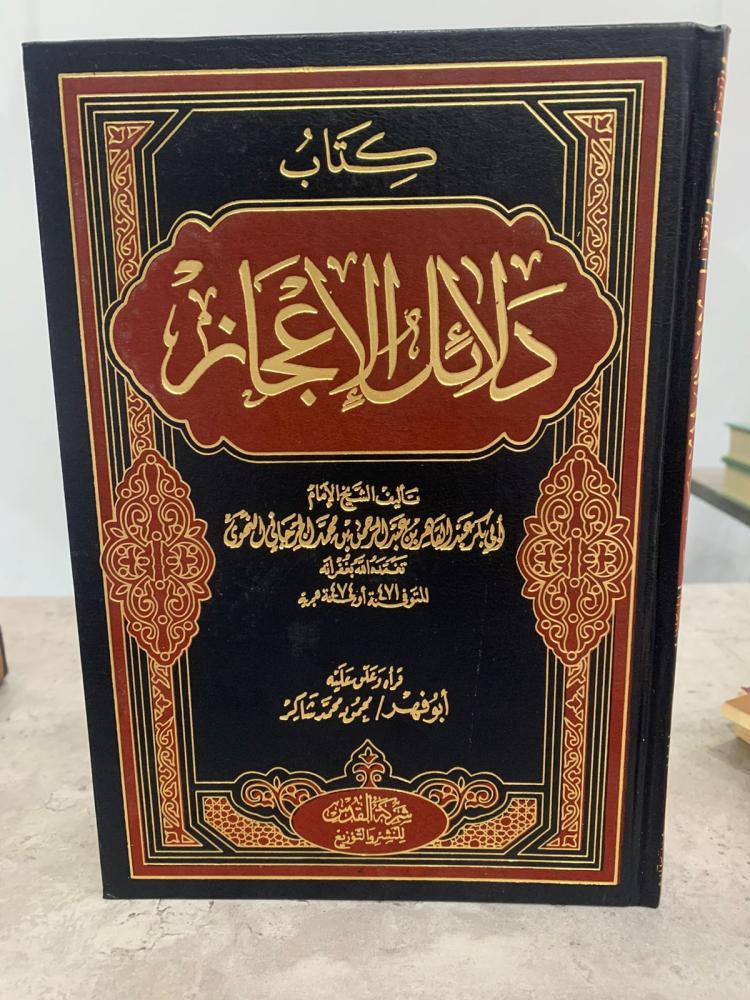 كِتَابُ
دَلَائِلُ الْإِعْجَازِ
تأليف الشيخ الإمام
أبي بكر عبد القاهر بن عبد الرحمن بن محمد الجرجاني النحوي
تغمده الله بغفرانه
المتوفى سنة ٤٧١ أو سنة ٤٧٤ هجرية
قرأه وعلق عليه
أبو فهر / محمود محمد شاكر
شركة القدس
للنشر والتوزيع